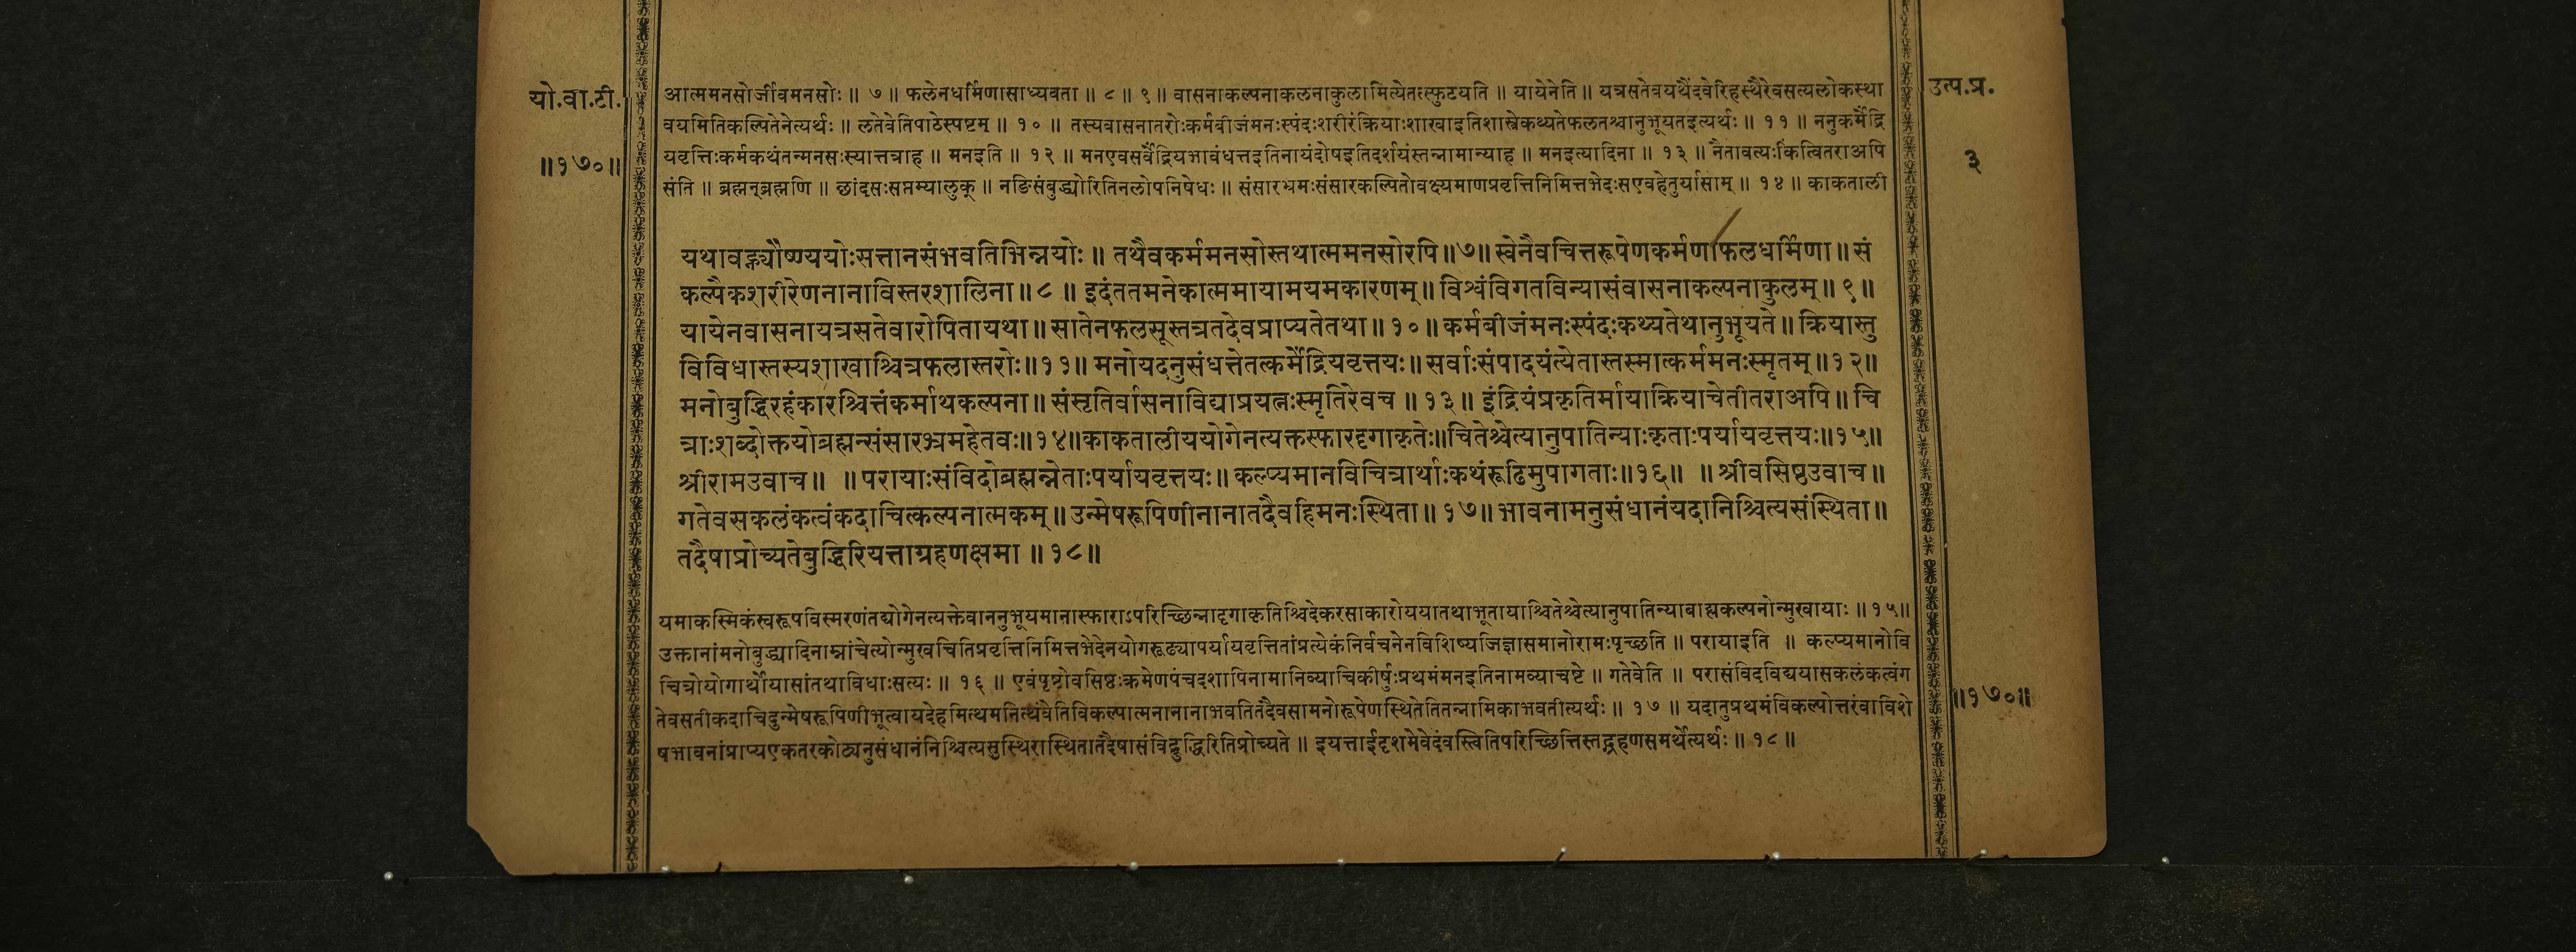 यो.वा.टी.
॥१७०॥
उत्प.प्र.
३
आत्ममनसोर्जीवमनसोः ॥ ७ ॥ फलेनधर्मिणासाध्यवता ॥ ८ ॥ ९ ॥ वासनाकल्पनाकलनाकुलामित्येतत्स्फुटयति ॥ यायेनेति ॥ यत्रसतेवयथैंदवेरिहस्थैरेवसत्यलोकस्था
वयमितिकल्पितेनेत्यर्थः ॥ लतेवेतिपाठेस्पष्टम् ॥ १० ॥ तस्यवासनातरोःकर्मबीजंमनःस्पंदःशरीरंक्रियाःशाखाइतिशास्त्रेकथ्यतेफलतश्चानुभूयतइत्यर्थः ॥ ११ ॥ ननुकर्मेंद्रि
यवृत्तिःकर्मकथंतन्मनसःस्यात्तत्राह ॥ मनइति ॥ १२ ॥ मनएवसर्वेंद्रियभावंधत्तइतिनायंदोषइतिदर्शयंस्तन्नामान्याह ॥ मनइत्यादिना ॥ १३ ॥ नैतावत्यःकिंत्वितराअपि
संति ॥ ब्रह्मन्ब्रह्मणि ॥ छांदसःसप्तम्यालुक् ॥ नङिसंबुद्ध्योरितिनलोपनिषेधः ॥ संसारभ्रमःसंसारकल्पितोवक्ष्यमाणप्रवृत्तिनिमित्तभेदःसएवहेतुर्यासाम् ॥ १४ ॥ काकताली
यथावह्न्यौष्ण्ययोःसत्तानसंभवतिभिन्नयोः ॥ तथैवकर्ममनसोस्तथात्ममनसोरपि ॥७॥ स्वेनैवचित्तरूपेणकर्मणाफलधर्मिणा ॥ सं
कल्पैकशरीरेणनानाविस्तरशालिना ॥ ८ ॥ इदंततमनेकात्ममायामयमकारणम् ॥ विश्वंविगतविन्यासंवासनाकल्पनाकुलम् ॥ ९ ॥
यायेनवासनायत्रसतेवारोपितायथा ॥ सातेनफलसूस्तत्रतदेवप्राप्यतेतथा ॥ १० ॥ कर्मबीजंमनःस्पंदःकथ्यतेथानुभूयते ॥ क्रियास्तु
विविधास्तस्यशाखाश्चित्रफलास्तरोः ॥११॥ मनोयदनुसंधत्तेतत्कर्मेंद्रियवृत्तयः ॥ सर्वाःसंपादयंत्येतास्तस्मात्कर्ममनःस्मृतम् ॥१२॥
मनोबुद्धिरहंकारश्चित्तंकर्माथकल्पना ॥ संसृतिर्वासनाविद्याप्रयत्नःस्मृतिरेवच ॥ १३ ॥ इंद्रियंप्रकृतिर्मायाक्रियाचेतीतराअपि ॥ चि
त्राःशब्दोक्तयोब्रह्मन्संसारभ्रमहेतवः ॥१४॥ काकतालीययोगेनत्यक्तस्फारदृगाकृतेः ॥ चितेश्चेत्यानुपातिन्याःकृताःपर्यायवृत्तयः ॥१५॥
श्रीरामउवाच ॥ ॥ परायाःसंविदोब्रह्मन्नेताःपर्यायवृत्तयः ॥ कल्प्यमानविचित्रार्थाःकथंरूढिमुपागताः ॥१६॥ ॥ श्रीवसिष्ठउवाच ॥
गतेवसकलंकत्वंकदाचित्कल्पनात्मकम् ॥ उन्मेषरूपिणीनानातदैवहिमनःस्थिता ॥ १७ ॥ भावनामनुसंधानंयदानिश्चित्यसंस्थिता ॥
तदैषाप्रोच्यतेबुद्धिरियत्ताग्रहणक्षमा ॥ १८ ॥
यमाकस्मिकंस्वरूपविस्मरणंतद्योगेनत्यक्तेवाननुभूयमानास्फाराऽपरिच्छिन्नादृगाकृतिश्चिदेकरसाकारोययातथाभूतायाश्चितेश्चेत्यानुपातिन्याबाह्यकल्पनोन्मुखायाः ॥ १५॥
उक्तानांमनोबुद्ध्यादिनाम्नांचेत्योन्मुखचितिप्रवृत्तिनिमित्तभेदेनयोगरूढ्यापर्यायवृत्तितांप्रत्येकंनिर्वचनेनविशिष्यजिज्ञासमानोरामःपृच्छति ॥ परायाइति ॥ कल्प्यमानोवि
चित्रोयोगार्थोयासांतथाविधाःसत्यः ॥ १६ ॥ एवंपृष्टोवसिष्ठःक्रमेणपंचदशापिनामानिव्याचिकीर्षुःप्रथमंमनइतिनामव्याचष्टे ॥ गतेवेति ॥ परासंविदविद्ययासकलंकत्वंग
तेवसतीकदाचिदुन्मेषरूपिणीभूत्वायदेहमित्थमनित्थंवेतिविकल्पात्मनानानाभवतितदैवसामनोरूपेणस्थितेतितन्नामिकाभवतीत्यर्थः ॥ १७ ॥ यदातुप्रथमंविकल्पोत्तरंवाविशे
षभावनांप्राप्यएकतरकोट्यनुसंधानंनिश्चित्यसुस्थिरास्थितातदैषासंविद्बुद्धिरितिप्रोच्यते ॥ इयत्ताईदृशमेवेदंवस्त्वितिपरिच्छित्तिस्तद्ग्रहणसमर्थेत्यर्थः ॥ १८ ॥
॥१७०॥